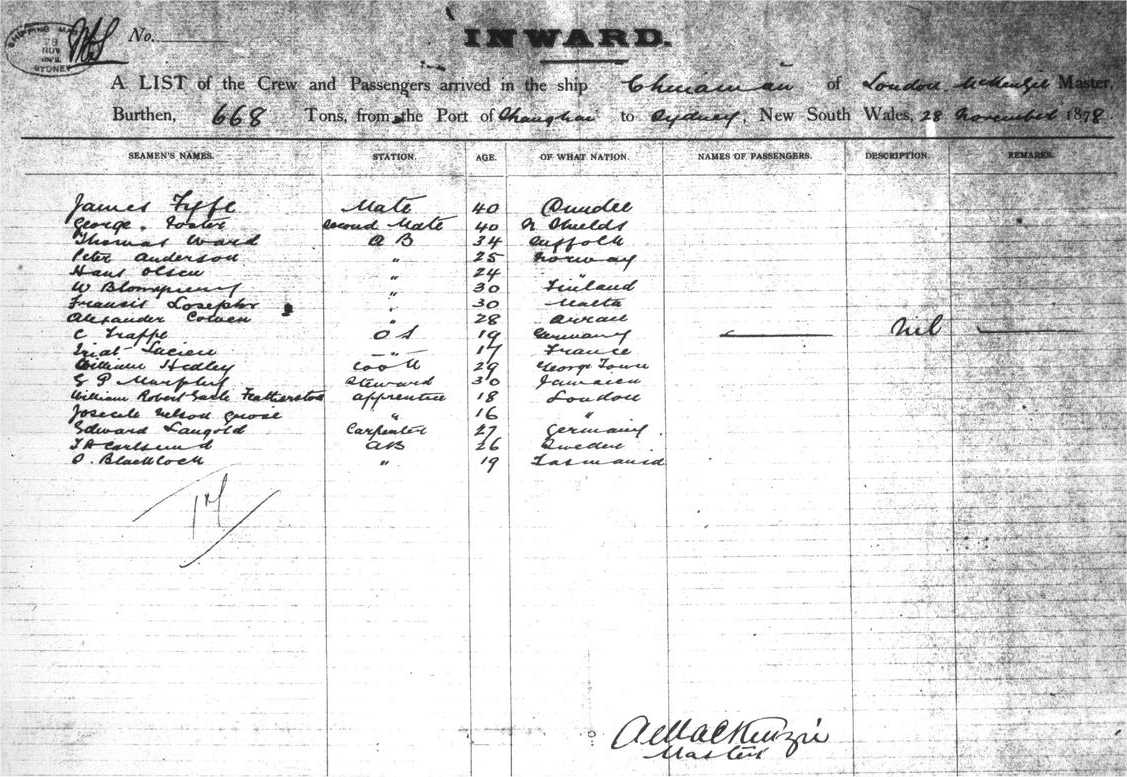 SHIPPING MA
28
NOV
SYDNEY
No.
INWARD.
A LIST of the Crew and Passengers arrived in the ship Chinaman of London McKenzie Master,
Burthen, 668 Tons, from the Port of Shanghai to Sydney, New South Wales, 28 November 1878
SEAMEN'S NAMES. STATION. AGE. OF WHAT NATION. NAMES OF PASSENGERS. DESCRIPTION. REMARKS.
James Fyffe Mate 40 Dundee
George Foster Second Mate 40 N Shields
Thomas Ward A B 34 Suffolk
Peter Anderson " 25 Norway
Hans Olsen " 24
W " 30 Finland
Francis Josephs " 30 Malta
Alexander Cowen " 28 Arran
C Trappe O S 19 Germany nil
Lucien " 17 France
William Hedley Cook 29 George Town
G P Murphy Steward 30 Jamaica
William Robert Featherston apprentice 18 London
Nelson " 16 "
Edward Langold Carpenter 27 Germany
AB 26 Sweden
O. Blacklock " 19 Tasmania
A MacKenzie
Master